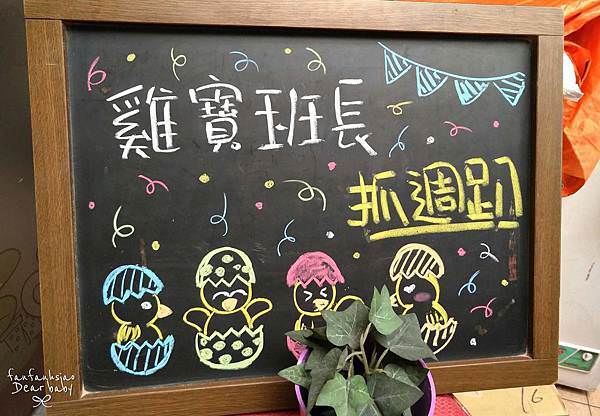 雞寶班長
抓週趴
fanfanhsiao
Dear baby